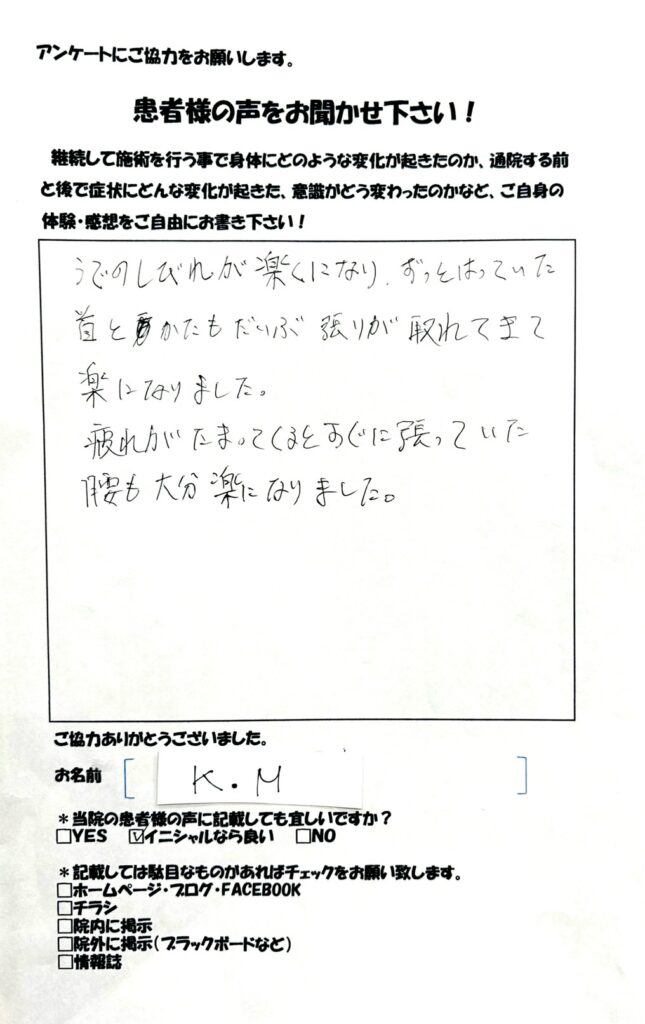 アンケートにご協力をお願いします。
患者様の声をお聞かせ下さい！
継続して施術を行う事で身体にどのような変化が起きたのか、通院する前
と後で症状にどんな変化が起きた、意識がどう変わったのかなど、ご自身の
体験・感想をご自由にお書き下さい！
うでのしびれが楽くになり、ずっとはっていた
首とかたもだいぶ張りが取れてきて
楽になりました。
疲れがたまってくるとすぐに張っていた
腰も大分楽になりました。
ご協力ありがとうございました。
お名前 [ K.M ]
＊当院の患者様の声に記載しても宜しいですか？
□YES ☑イニシャルなら良い □NO
＊記載しては駄目なものがあればチェックをお願い致します。
□ホームページ・ブログ・FACEBOOK
□チラシ
□院内に掲示
□院外に掲示（ブラックボードなど）
□情報誌